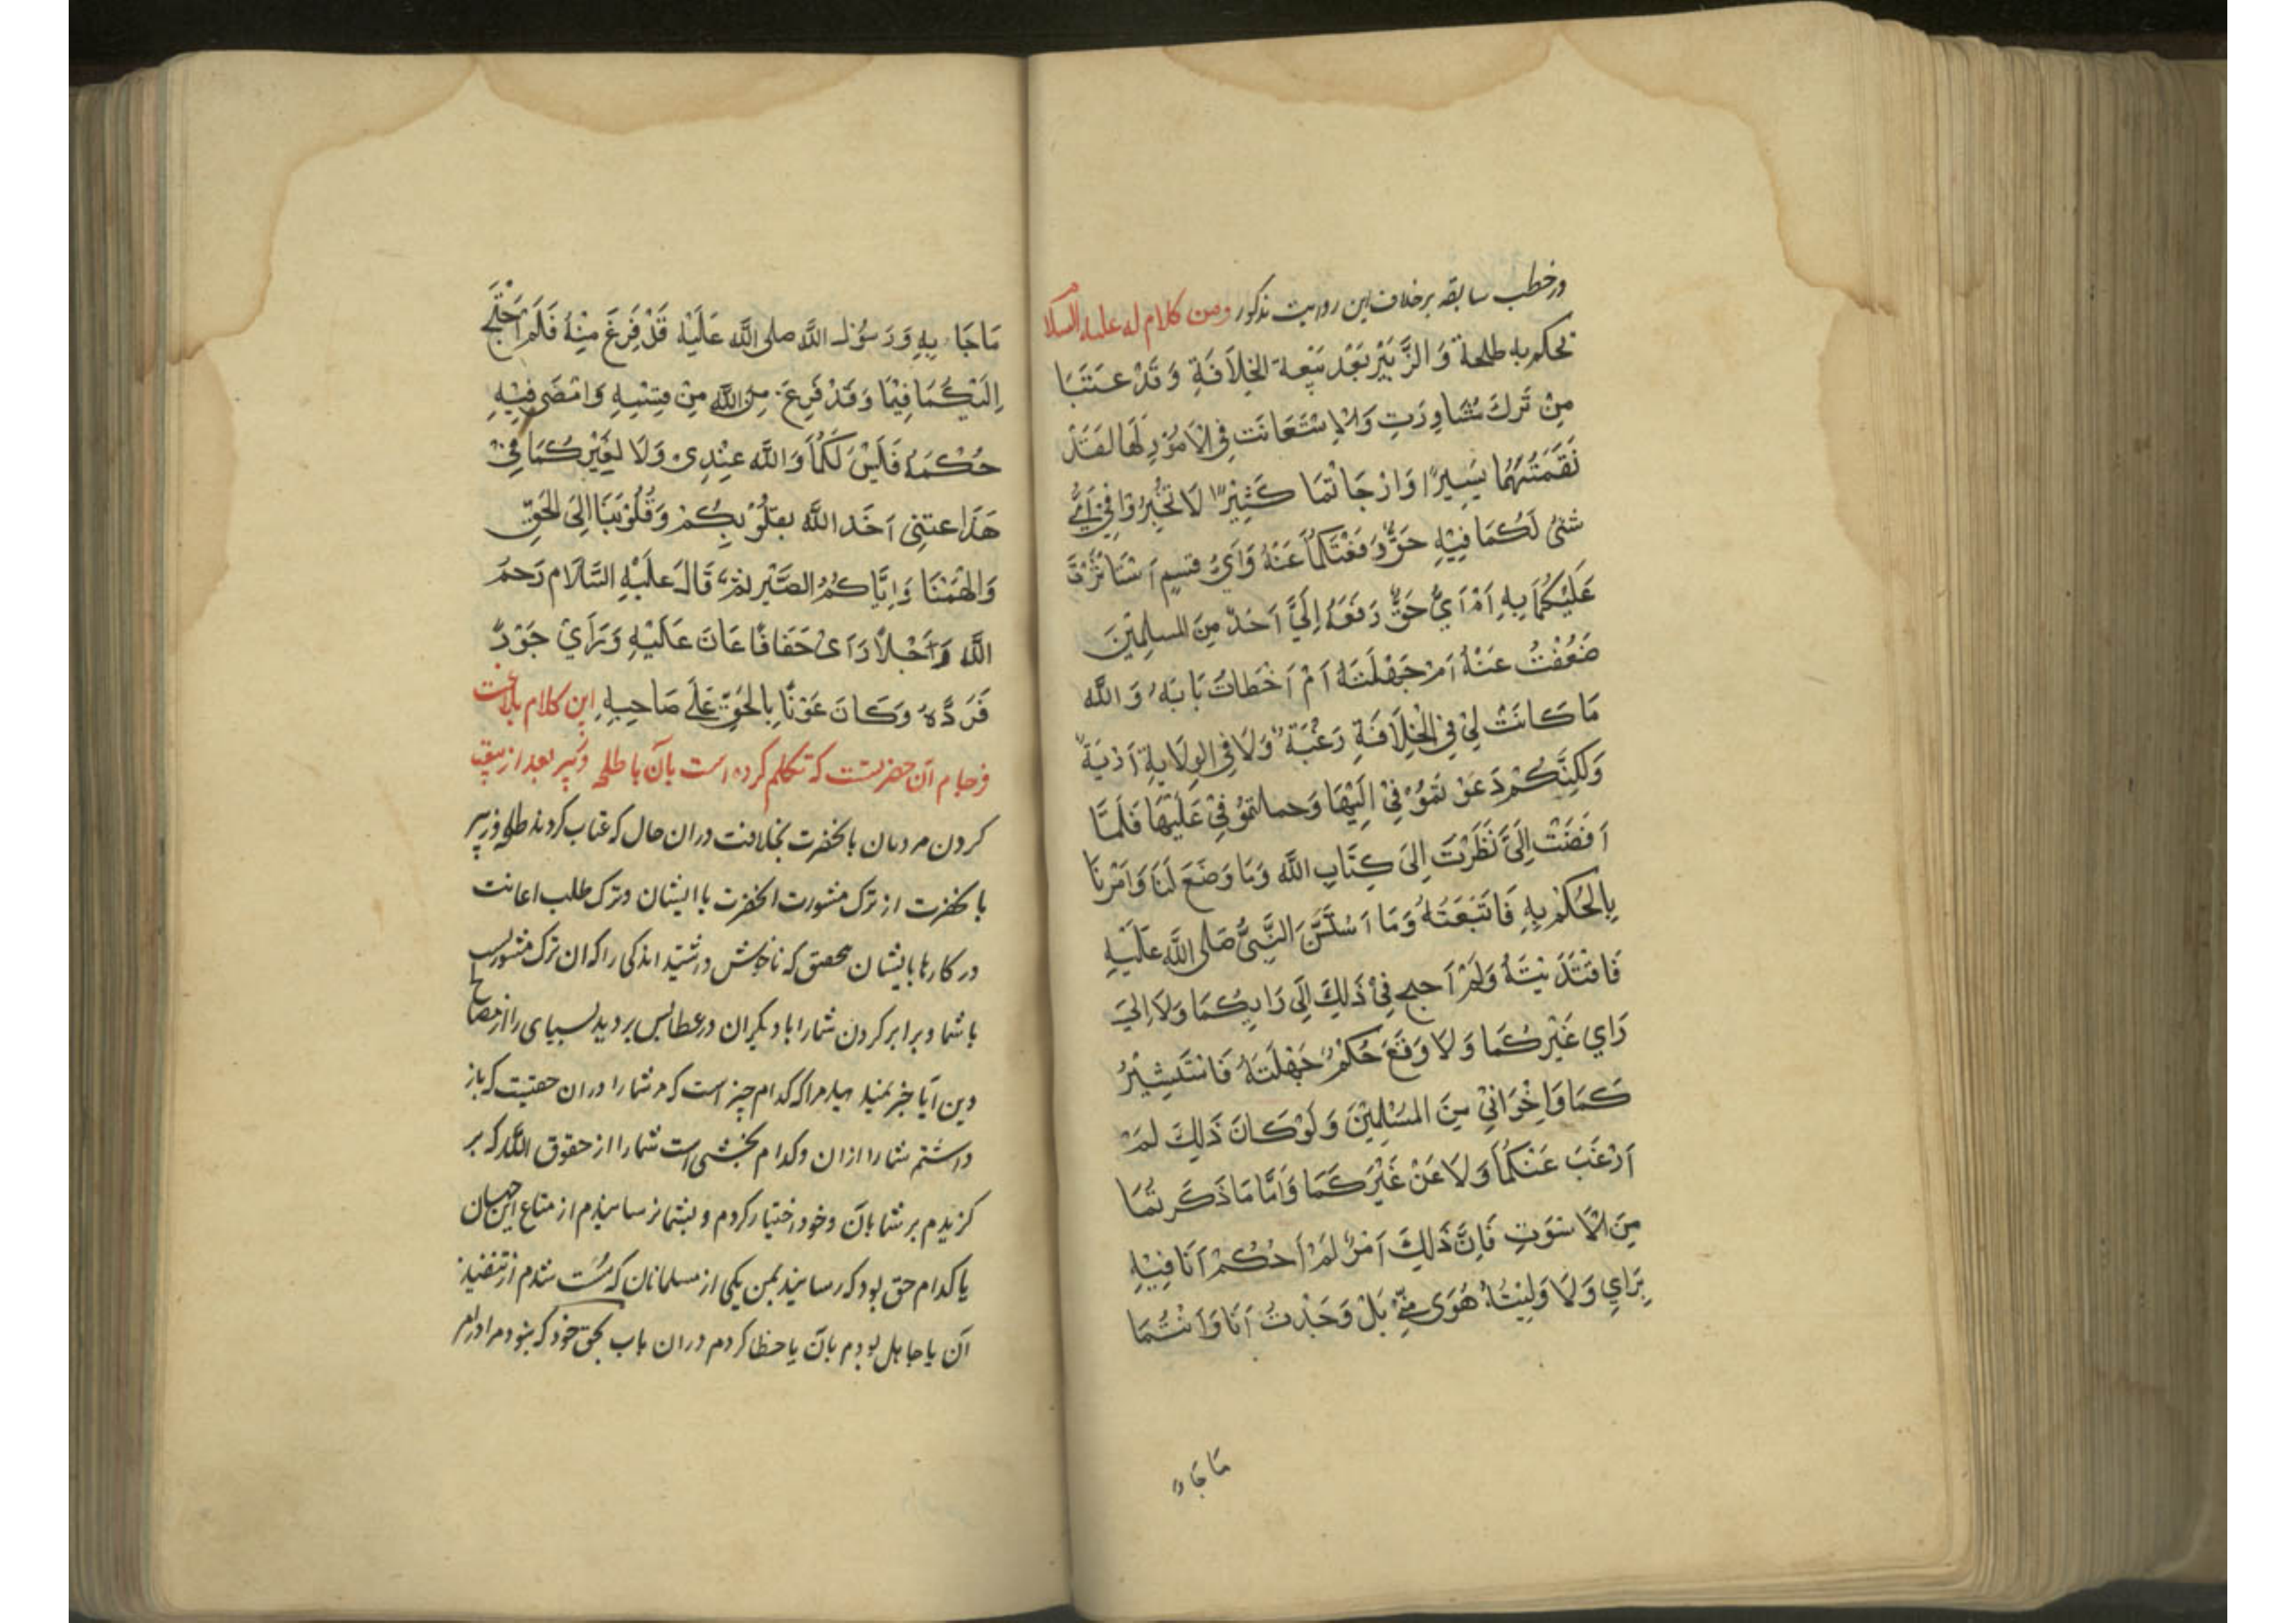 در خطب سابقه برخلاف این روایت مذکور ومن کلام له علیه السلام
تحکم به طلحة وَالزَّبَیْر بَعْد بَیْعة الخِلَافَةِ وَقَدْ عَتَبَا
مِنْ تَرك مُشَاوِرَتِ وَالاِسْتَعَانَت فِی الاَمُوْرِ لَها لَقَدْ
نَقَمْتُمَا یَسِیرًا وَارْجَاتُمَا کَثِیْرًا لَا تُخْبِرُوْانِی اَیُّ
شئ لَکُمَا فِیْهِ حَقٌّ دَفَعْتُکُمَا عَنْهُ وَاَیُّ قسمٍ اَسْتَاثَرْتُ
عَلَیْکُمَا بِهِ اَمْ اَیُّ حَقٌّ رَفَعَهُ اِلَیَّ اَحَدٌ مِنَ المسلِمِیْنَ
ضَعُفْتُ عَنْهُ اَمْ جَهْلَتَهُ اَمْ اَخْطَاتُ بَابَهُ وَالله
مَا کَانَتْ لِیْ فِی الْخِلَافَةِ رَغْبَة وَلَا فِی الوِلَایةِ اَرْبَیَةٌ
وَلَکِنَّکُمْ دَعَوْتَمُوْنِیْ اِلَیْهَا وَحملتموْنِیْ عَلَیْهَا فَلَمَّا
اَفَضَتْ اِلَیَّ نَظَرْتَ اِلیَ کِتَابِ الله وَمَا وَضَعَ لَنَا وَاَمَرْنَا
بِالحُکْم بِهِ فَاتَبَعَتُهُ وَمَا اَسْتَسَنَّ النَّبِیُّ صَلی الله عَلَیْهِ
فَاقْتَدَیْتَهُ وَلَمْ اَحتج فِیْ ذَلِكَ اِلَی رَایِکُمَا وَلَا اِلیَ
رَاي غَیْرِکُمَا وَلَا وَقَعَ حُکْمٌ جَهْلَتَهُ فَاسْتَشِیْرُ
کَمَا وَاِخْوَانِیْ مِنَ المسْلِمِیْنَ وَلَوْ کَانَ ذَلِكَ لَمْ
اَرْغَبَ عَنْکُمَا وَلَا عَنْ غَیْرِکَمَا وَاَمَّا مَا ذَکَرتُمَا
مِنَ الاُسْوَتِ فَاِنَّ ذَلِكَ اَمْرٌ لَمْ اَحْکُمْ اَنَا فِیْهِ
بِرَایِ وَلَا وَلِیْتُهُ هُوَی مِنِّیْ بَلْ وَجَدْتُ اَنَا وَاَنْتُمَا
مَا جَاءَ
مَا جَاءَ بِهِ وَرَسُوْلـ الله صلی الله عَلَیْهِ قَدْ فَرِغَ مِنْهُ فَلَمْ اَحْتَجَ
اِلَیْکُمَا فِیْمَا وَقَدْ فَرِغَ مِنَ الله مِنْ قِسْمِهِ وَامْضَی فِیْهِ
حُکْمَهُ فَلَیْسَ لَکُمَا وَالله عِنْدِی وَلَا لِغَیْرِکُمَا فِیْ
هَذَا عتبی اَخَذ الله بقلُوْبِکُمْ وَقُلُوْبَنَا اِلیَ الحَقِّ
وَالْهَمْنَا وَاِیَّاکُمُ الصَّبْر ثمّ قَالـَ عَلَیْهِ السَّلَام رَحِمَ
الله رَجُلًا رَاَی حَقَا فَاعَانَ عَلَیْهِ وَرَاَیْ جَوْرً
فَرَدَّهُ وَکَانَ عَوْنًا بِالحَقِّ عَلَی صَاحِبِهِ این کلام بلاغت
فرجام آن حضرتست که تکلم کرده است بآن با طلحه وزبیر بعد از بیعت
کردن مردمان بآنحضرت بخلافت دران حال که عتاب کردند طلحه وزبیر
بآنحضرت از ترک مشورت آنحضرت با ایشان وترک طلب اعانت
در کارها بایشان بتحقیق که ناخوش داشتید اندکی را که ان ترک مشورتست
باشما وبرابر کردن شما را بادیگران در عطا پس بردید بسیاری را از مصالح
دین آیا خبر نمیدهید مرا که کدام چیز است که مر شما را دران حقیست که باز
داشتم شما را ازان وکدام بخشی است شما را از حقوق الله که بر
گزیدم بر شما بآن وخود اختیار کردم وبشما نرسانیدم از متاع این جهان
یا کدام حق بود که رسانید بمن یکی از مسلمانان که سُست شدم از تنفیذ
آن یا جاهل بودم بآن یا خطا کردم دران باب بحق خود که نبود مرا در امر